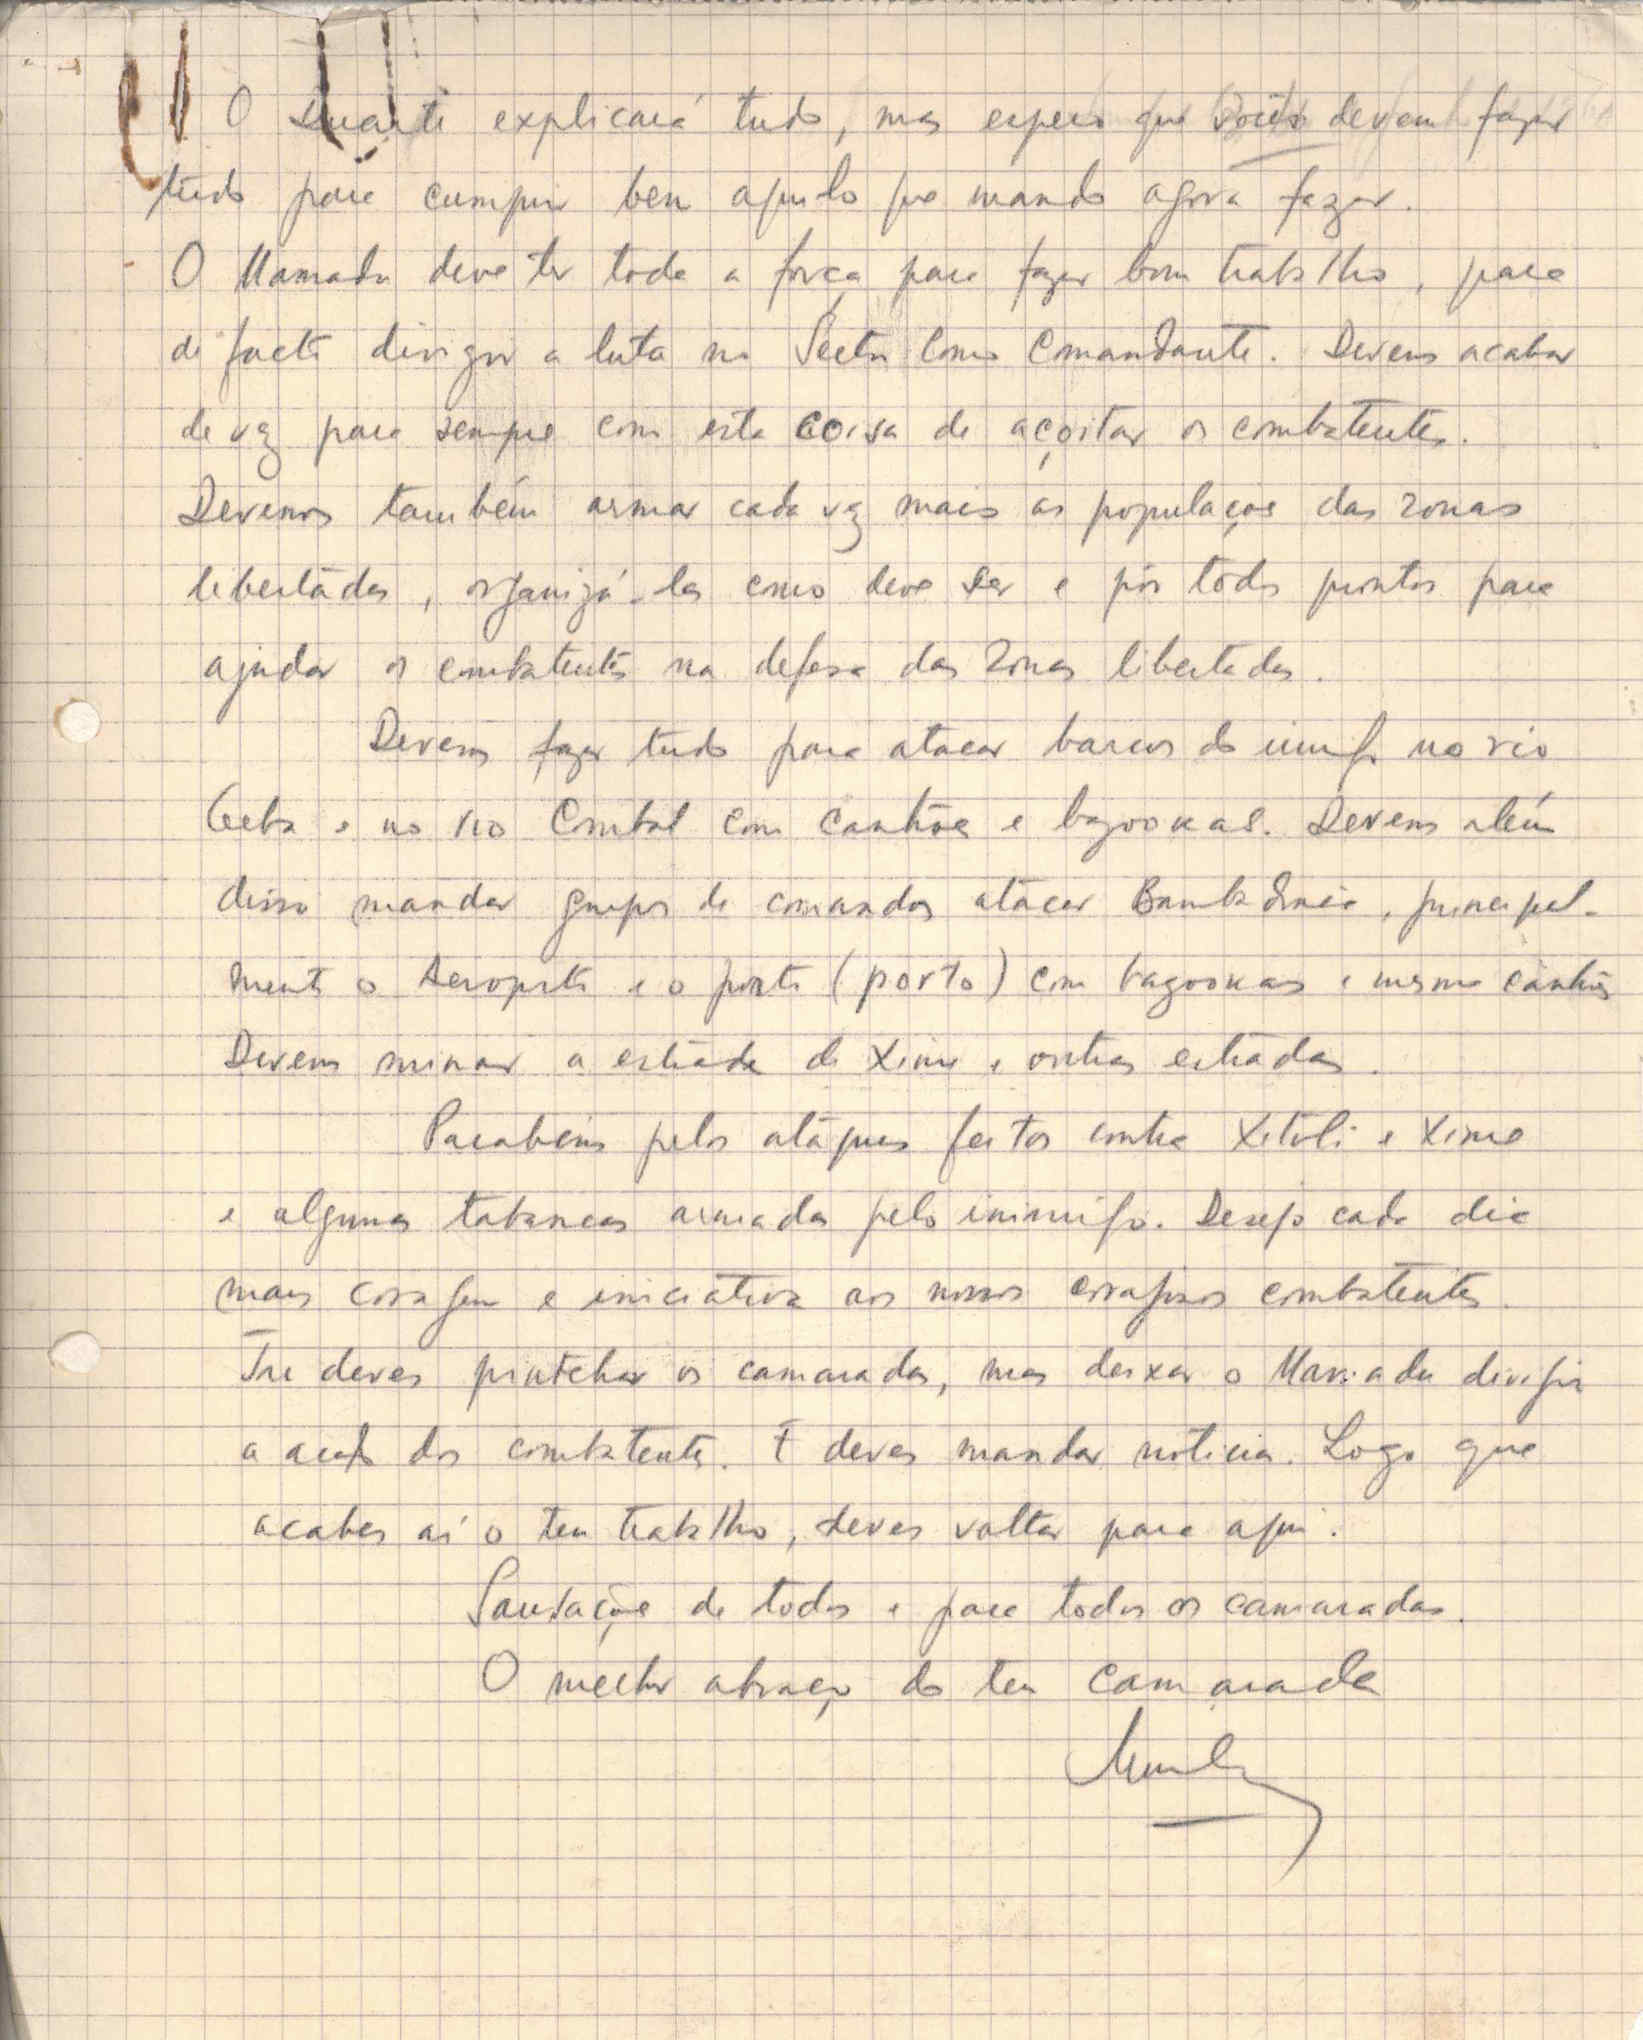 O Duarte explicará tudo, mas espero que vocês devem fazer
tudo para cumprir bem aquilo que mando agora fazer.
O Mamadu deve ter toda a força para fazer bom trabalho, para
de facto dirigir a luta no Sector como Comandante. Devem acabar
de vez para sempre com esta coisa de açoitar os combatentes.
Devemos também armar cada vez mais as populações das zonas
libertadas, organizá-las como deve ser e pôr todos prontos para
ajudar os combatentes na defesa das zonas libertadas.
Devem fazer tudo para atacar barcos do inimigo no rio
Geba e no rio Corubal com canhões e bazookas. Devem além
disso mandar grupos de comandos atacar Bambadinca, principal-
mente o Aeroporto e o porto (porto) com bazookas e mesmo canhões
Devem minar a estrada de Xime e outras estradas.
Parabéns pelos ataques feitos contra Xitoli e Xime
e algumas tabancas armadas pelo inimigo. Desejo cada dia
mais coragem e iniciativa aos nossos corajosos combatentes.
Tu deves controlar os camaradas, mas deixar o Mamadu dirigir
a acção dos combatentes. E deves mandar notícias. Logo que
acabes aí o teu trabalho, deves voltar para aqui.
Saudações de todos e para todos os camaradas.
O melhor abraço do teu camarada